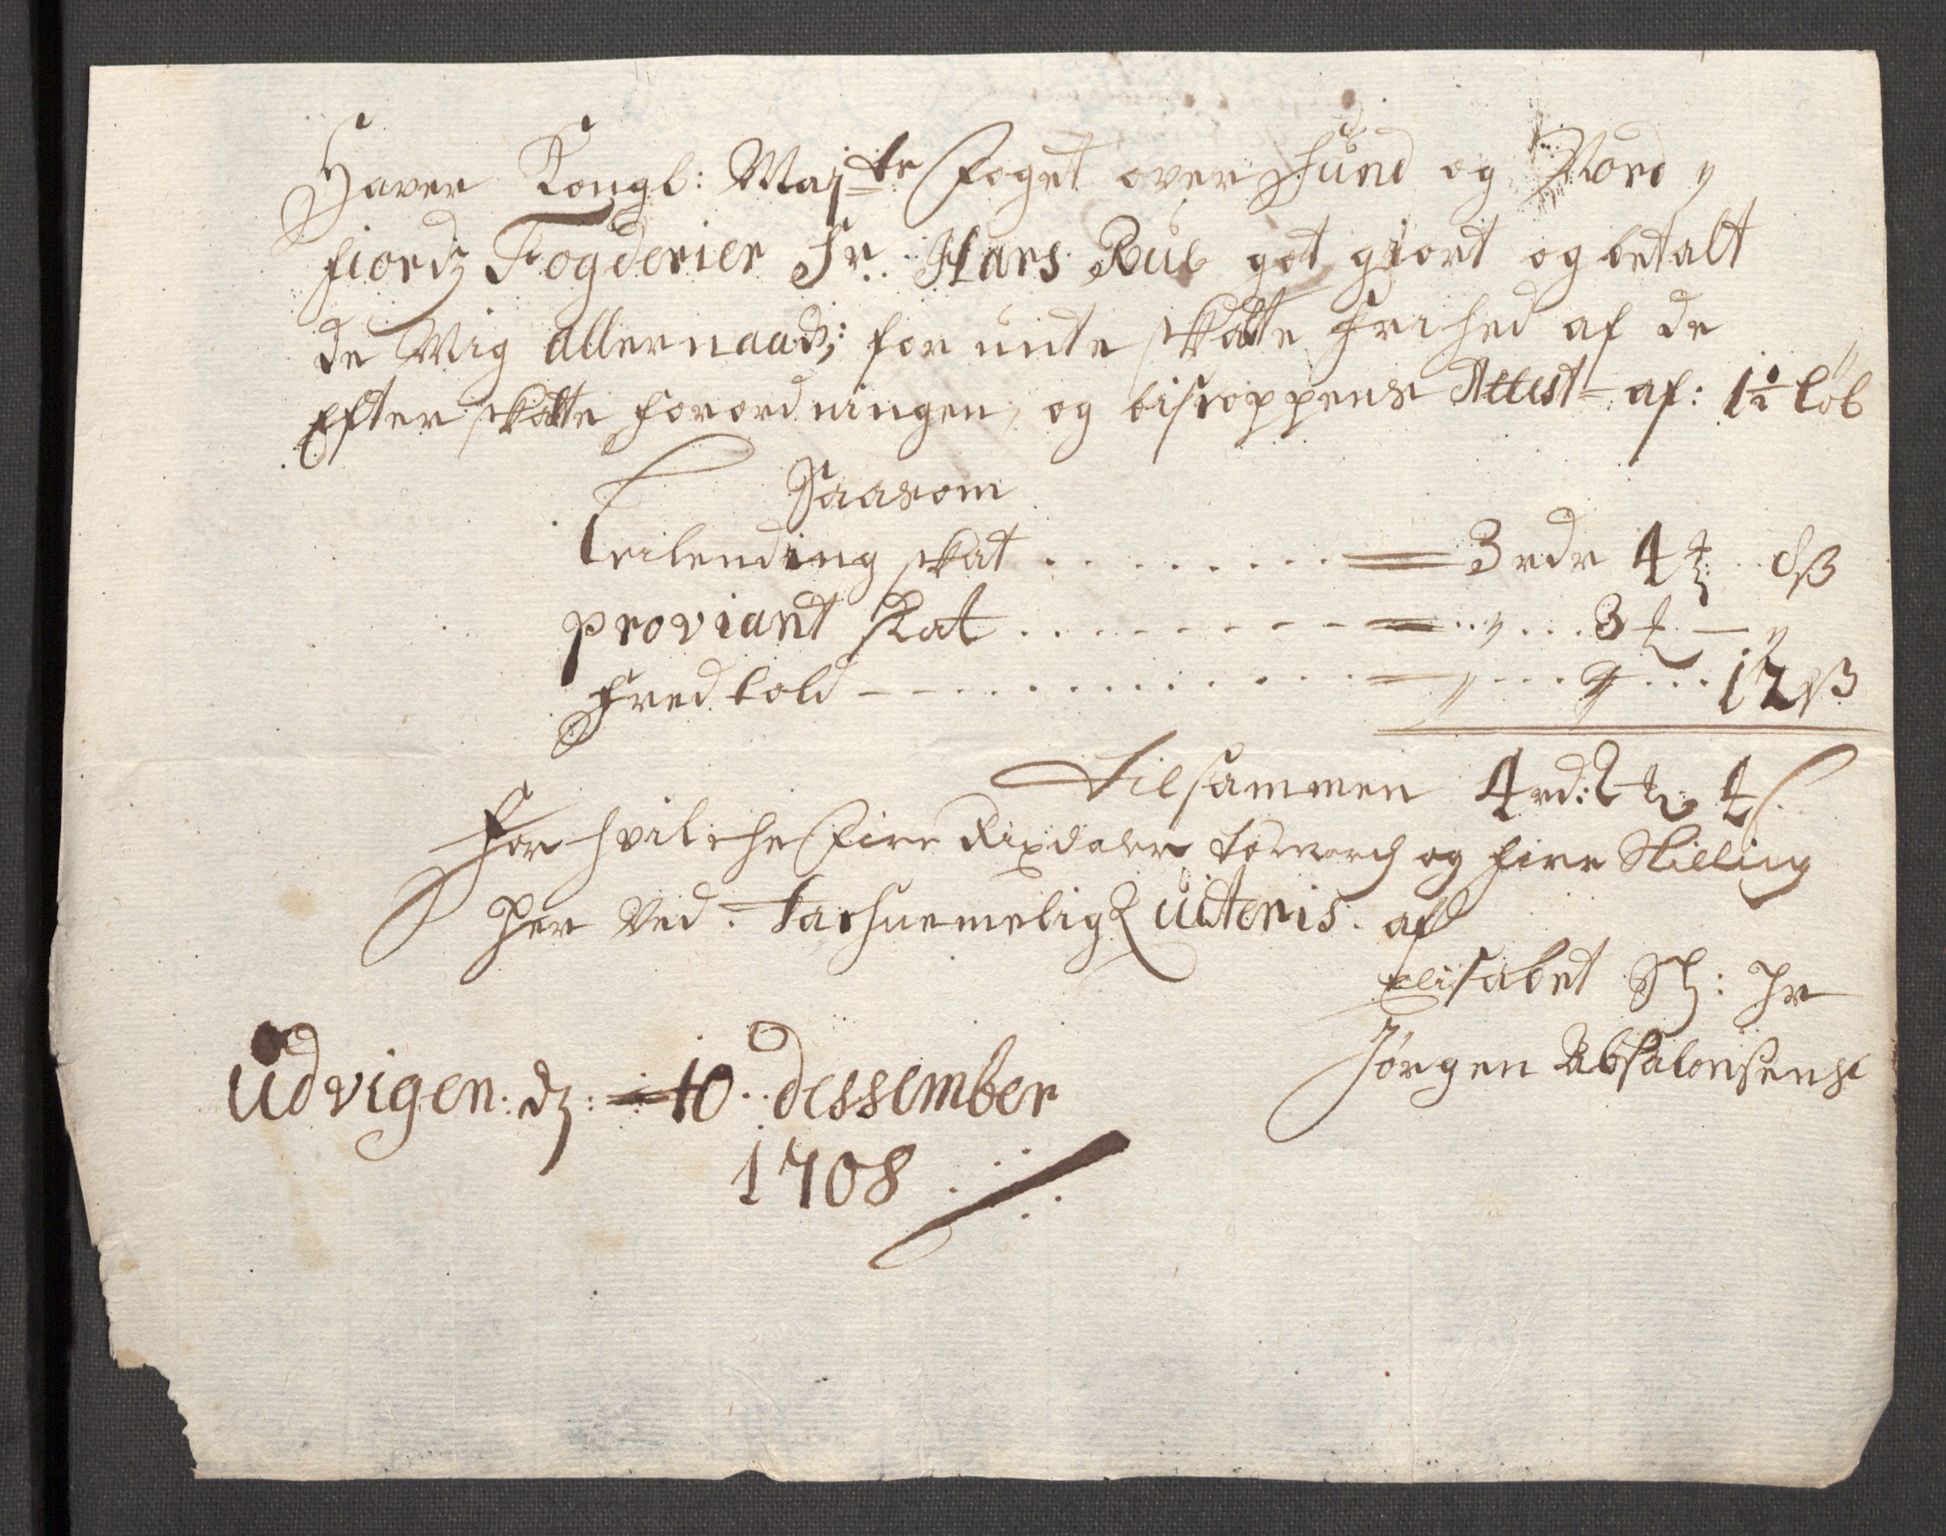 Haver Kongl: Maj:te Foget over Sund og Nord
fiordz Fogderier Sr. Hans Rub got giort og betalt
de Mig allernaadz: for unte skatte Frihed af de
Efter skatte forordningen, og bisroppens Attest af: 1 1/2 løb
Saasom
Leilending skat . . . . . . . . . 3 rdr 4 ß
proviant skat . . . . . . . . . „ . . . 3
Fred told . . . . . . . . . . „ . . . „ . . . 12 ß
Tilsammen 4 rd: 2 4 s.
For hvilche Fire Rixdaler tormarch og fire Skilling
her Ved tachnemelig Quiteris. af
Elisabet Sl: Hr
Jørgen Absalonsens
Udvigen: dz: 10 dessember
1708